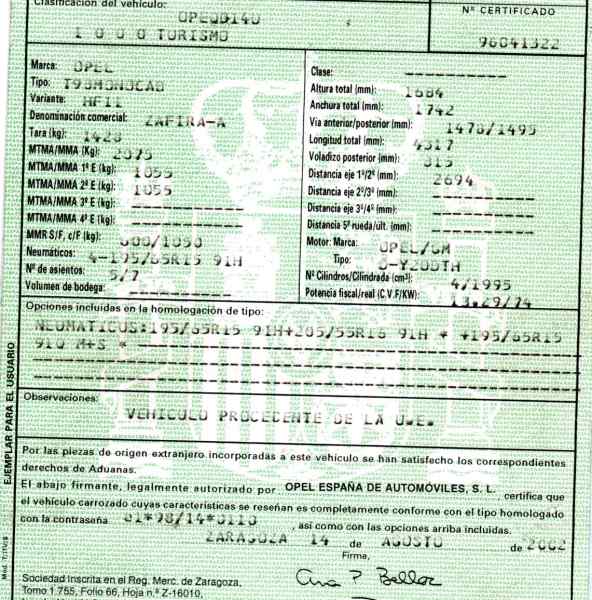 Clasificación del vehículo:
1000 TURISMO
Nº CERTIFICADO
96041322
Marca: OPEL
Tipo: T98MONOCAB
Variante: HF11
Denominación comercial: ZAFIRA-A
Tara (kg): 1428
MTMA/MMA (Kg): 2075
MTMA/MMA 1º E (kg): 1055
MTMA/MMA 2º E (kg): 1055
MTMA/MMA 3º E (kg):
MTMA/MMA 4º E (kg):
MMR S/F, c/F (kg): 600/1050
Neumáticos: 4-195/65R15 91H
Nº de asientos: 5/7
Volumen de bodega:
Clase:
Altura total (mm): 1684
Anchura total (mm): 1742
Via anterior/posterior (mm): 1470/1495
Longitud total (mm): 4317
Voladizo posterior (mm): 815
Distancia eje 1º/2º (mm): 2694
Distancia eje 2º/3º (mm):
Distancia eje 3º/4º (mm):
Distancia 5ª rueda/últ. (mm):
Motor: Marca: OPEL/GM
Tipo: D-Y20DTH
Nº Cilindros/Cilindrada (cm³): 4/1995
Potencia fiscal/real (C.V.F/KW): 13.29/74
Opciones incluidas en la homologación de tipo:
NEUMATICOS:195/65R15 91H+205/55R16 91H * +195/65R15
91Q M+S *
Observaciones:
VEHICULO PROCEDENTE DE LA U.E.
Por las piezas de origen extranjero incorporadas a este vehículo se han satisfecho los correspondientes
derechos de Aduanas.
El abajo firmante, legalmente autorizado por OPEL ESPAÑA DE AUTOMÓVILES, S. L. certifica que
el vehículo carrozado cuyas características se reseñan es completamente conforme con el tipo homologado
con la contraseña e1*98/14*0110, así como con las opciones arriba incluidas.
ZARAGOZA 14 de AGOSTO de 2002
Firma,
Sociedad Inscrita en el Reg. Merc. de Zaragoza,
Tomo 1.755, Folio 66, Hoja n.º Z-16010,
EJEMPLAR PARA EL USUARIO